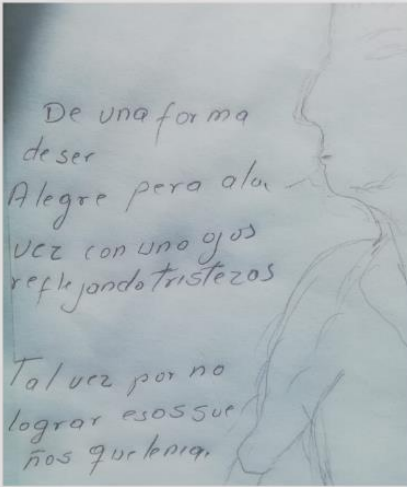 De una forma
de ser
Alegre pero a la
vez con uno ojos
reflejando tristezas
Tal vez por no
lograr esos sue
ños que tenia.